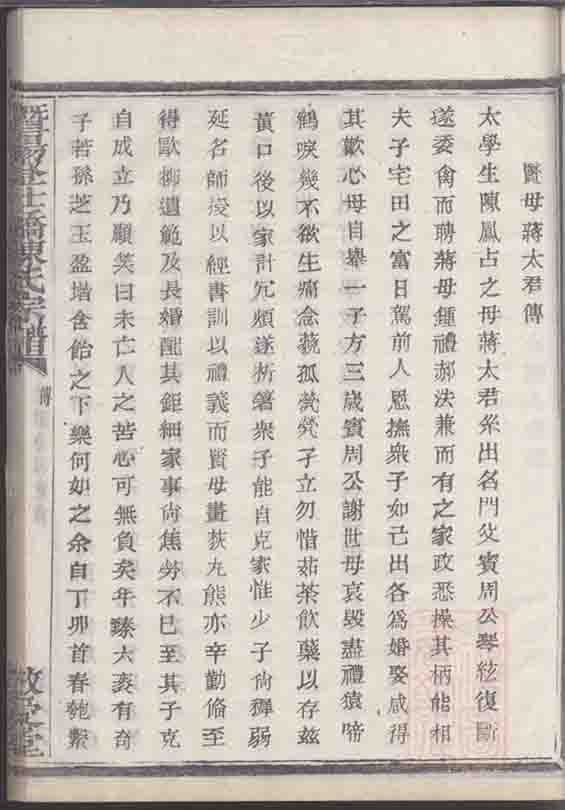 賢母蔣太君傳
太學生陳鳳占之母蔣太君系出名門父賓周公琴絃復斷
遂委禽而聘蔣母鍾禮郝法兼而有之家政悉操其柄能相
夫子宅田之富日駕前人恩撫衆子如己出各爲婚娶咸得
其歡心母自舉一子方三歲賓周公謝世母哀毀盡禮猿啼
鶴唳幾不欲生痛念藐孤煢煢孑立勿惜茹荼飲蘗以存茲
黃口後以家計冗煩遂析箸衆子能自克家惟少子尙穉弱
延名師授以經書訓以禮義而賢母畫荻丸熊亦辛勤備至
得歐柳遺範及長婚配其鉅細家事尙焦勞不已至其子克
自成立乃顧笑曰未亡人之苦心可無負矣年臻六袠有奇
子若孫芝玉盈堦含飴之下樂何如之余自丁卯首春匏繫
暨陽 仕橋陳氏宗譜
傳
敦 堂